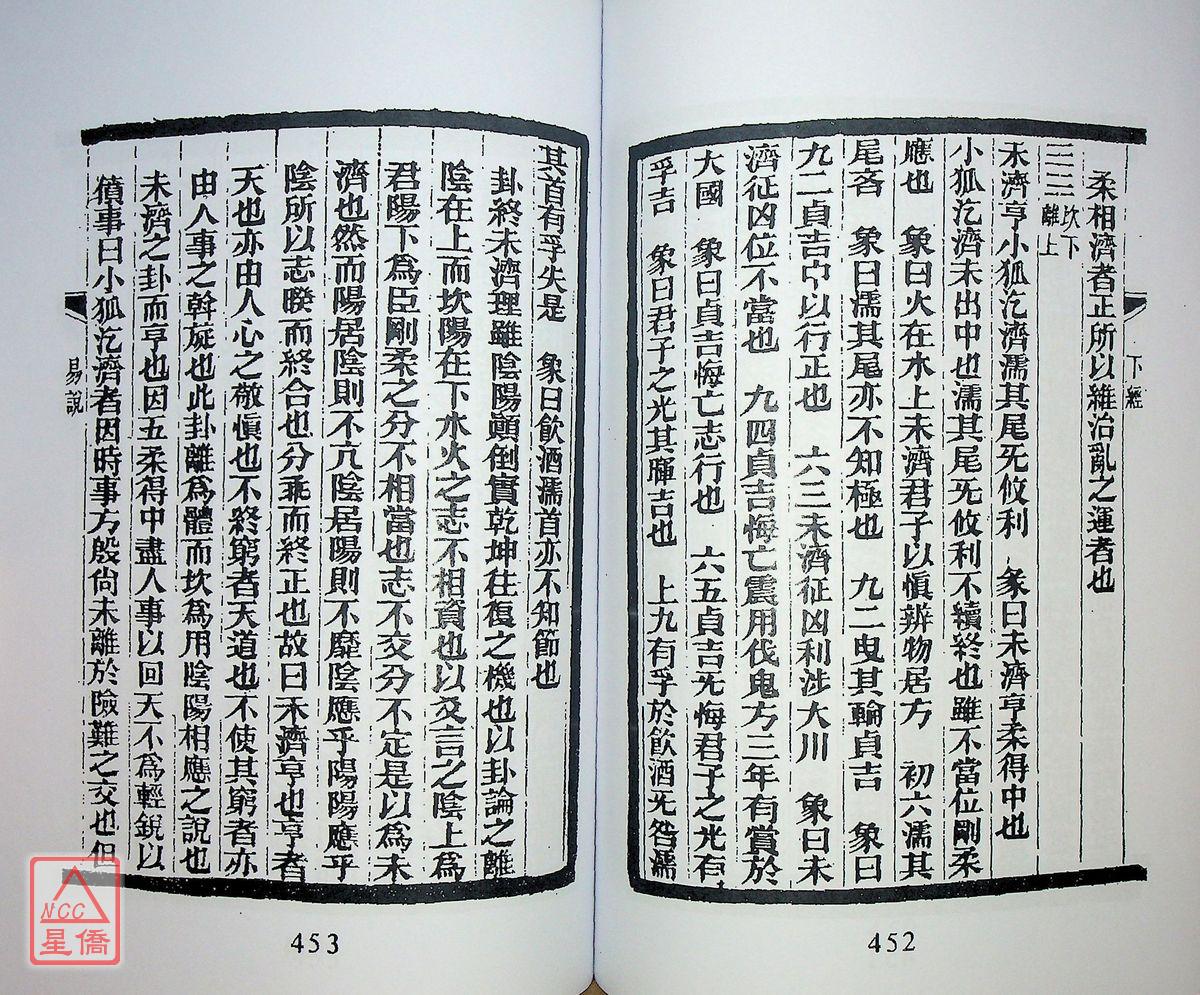 下經
柔相濟者正所以維治亂之運者也
坎下
離上
未濟亨小狐汔濟濡其尾旡攸利　彖曰未濟亨柔得中也
小狐汔濟未出中也濡其尾旡攸利不續終也雖不當位剛柔
應也　象曰火在水上未濟君子以慎辨物居方　初六濡其
尾吝　象曰濡其尾亦不知極也　九二曳其輪貞吉　象曰
九二貞吉中以行正也　六三未濟征凶利涉大川　象曰未
濟征凶位不當也　九四貞吉悔亡震用伐鬼方三年有賞於
大國　象曰貞吉悔亡志行也　六五貞吉旡悔君子之光有
孚吉　象曰君子之光其暉吉也　上九有孚於飲酒旡咎濡
452
其首有孚失是　象曰飲酒濡首亦不知節也
卦終未濟理雖陰陽顚倒實乾坤往復之機也以卦論之離
陰在上而坎陽在下水火之志不相資也以爻言之陰上爲
君陽下爲臣剛柔之分不相當也志不交分不定是以爲未
濟也然而陽居陰則不亢陰居陽則不靡陰應乎陽陽應乎
陰所以志暌而終合也分乖而終正也故曰未濟亨也亨者
天也亦由人心之敬慎也不終窮者天道也不使其窮者亦
由人事之斡旋也此卦離爲體而坎爲用陰陽相應之說也
未濟之卦而亨也因五柔得中盡人事以回天不爲輕銳以
僨事曰小狐汔濟者因時事方殷尙未離於險難之交也但
易說
453
NCC
星僑